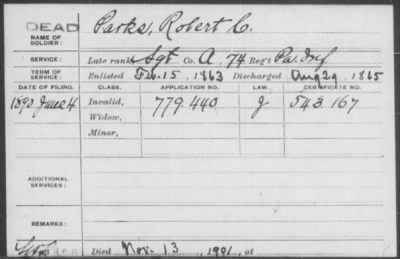 DEAD
NAME OF SOLDIER: Parks, Robert C.
SERVICE: Late rank Sgt Co. A, 74 Reg't Pa. Inf.
TERM OF SERVICE: Enlisted Feb. 15, 1863 Discharged Aug 29, 1865
DATE OF FILING. CLASS. APPLICATION NO. LAW. CERTIFICATE NO.
1890 June 4 Invalid, 779.440 J 543 167
Widow,
Minor,
ADDITIONAL SERVICES:
REMARKS:
Died Nov. 13, 1901, at